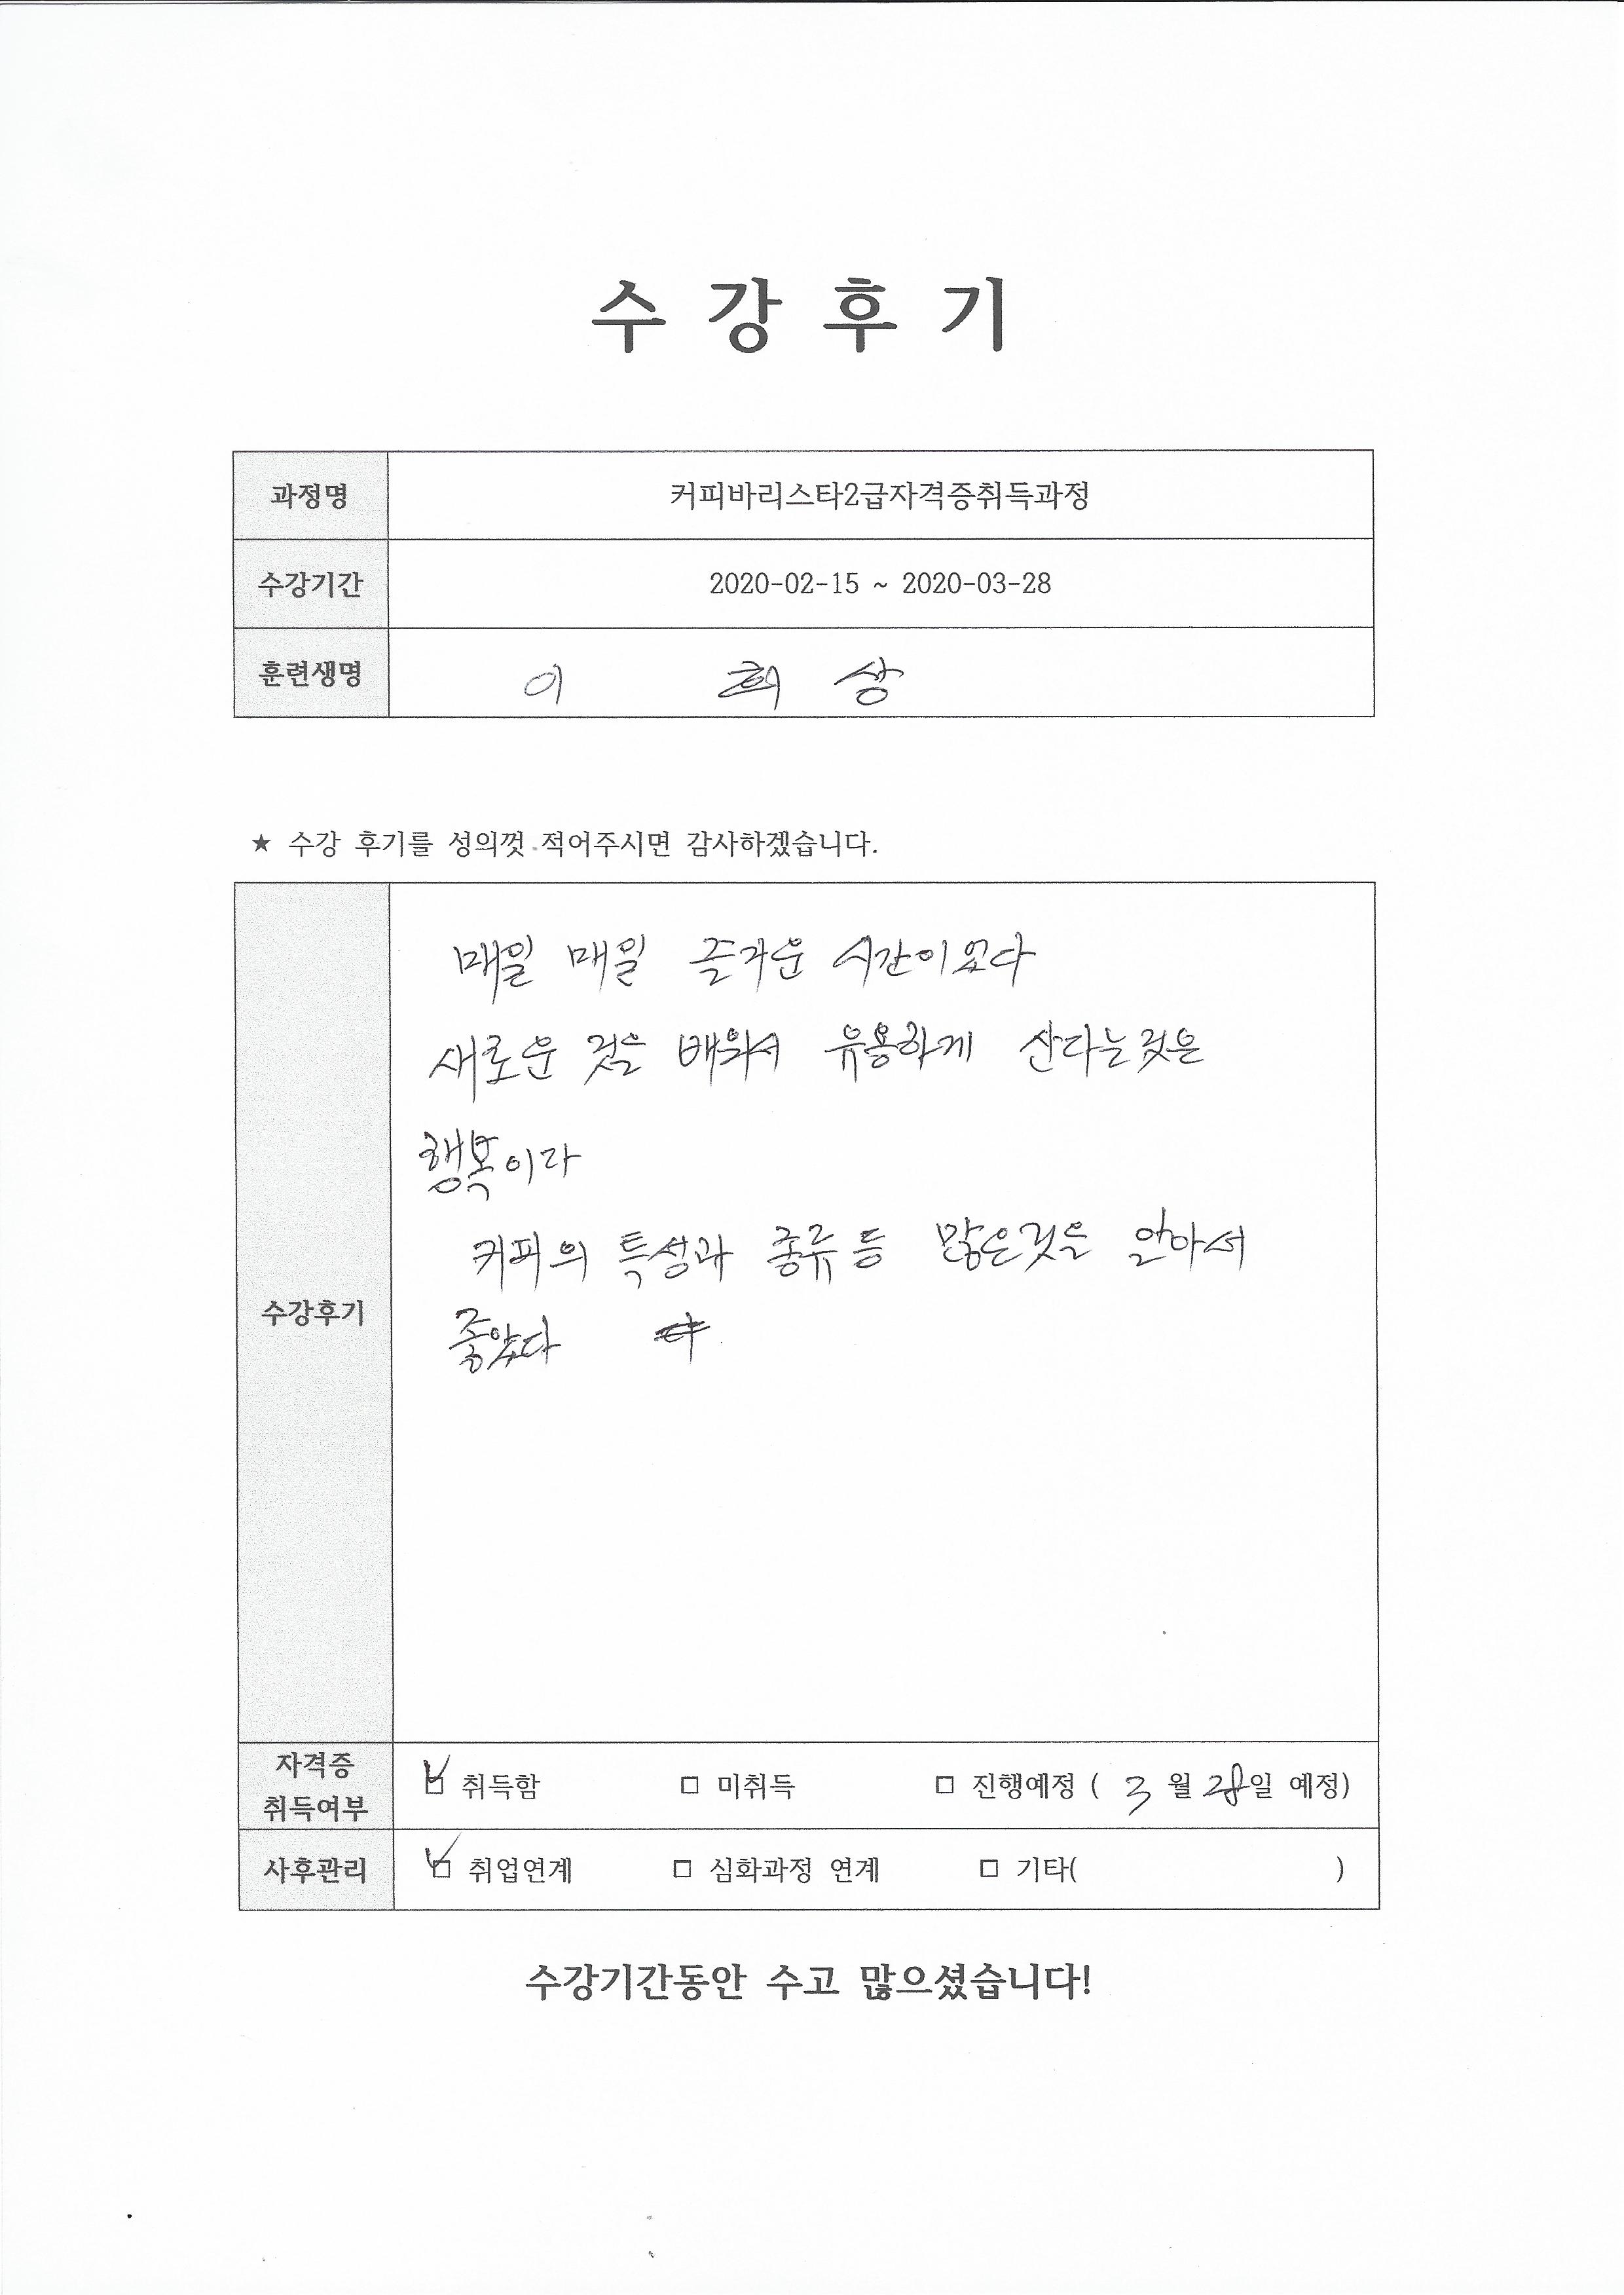 수 강 후 기
과정명 커피바리스타2급자격증취득과정
수강기간 2020-02-15 ~ 2020-03-28
훈련생명 이 희 상
★ 수강 후기를 성의껏 적어주시면 감사하겠습니다.
매일 매일 즐거운 시간이였다
새로운 것을 배워서 유용하게 산다는것은
행복이라
수강후기
커피의 특성과 종류 등 많은것을 알아서
좋았다
자격증 취득여부 ☑ 취득함 □ 미취득 □ 진행예정 ( 3 월 28일 예정)
사후관리 ☑ 취업연계 □ 심화과정 연계 □ 기타( )
수강기간동안 수고 많으셨습니다!